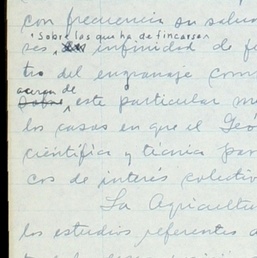 con frecuencia su salud
sobre las que ha de fincarse
ses, infinidad de fe
tro del engranaje com
acerca de
sobre, este particular m
los casos en que el Geó
científica y técnica par
cos de interés colectiv
La Agricultu
los estudios referentes a